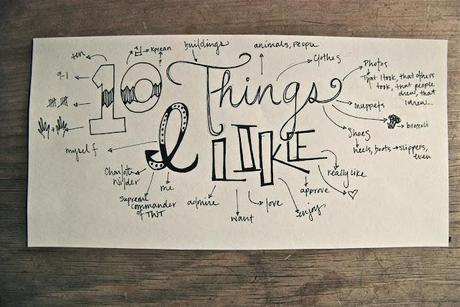 10 Things
I LIKE
ten
Korean
9-1
buildings
animals, people
clothes
Photos
That I took, that others
took, that people
drew, that
I drew...
muppets
broccoli
shoes
heels, boots → slippers,
even
myself
Charlotte
Wilder
Supreme
commander
of TWT
me
admire
want
love
enjoy
approve
really like